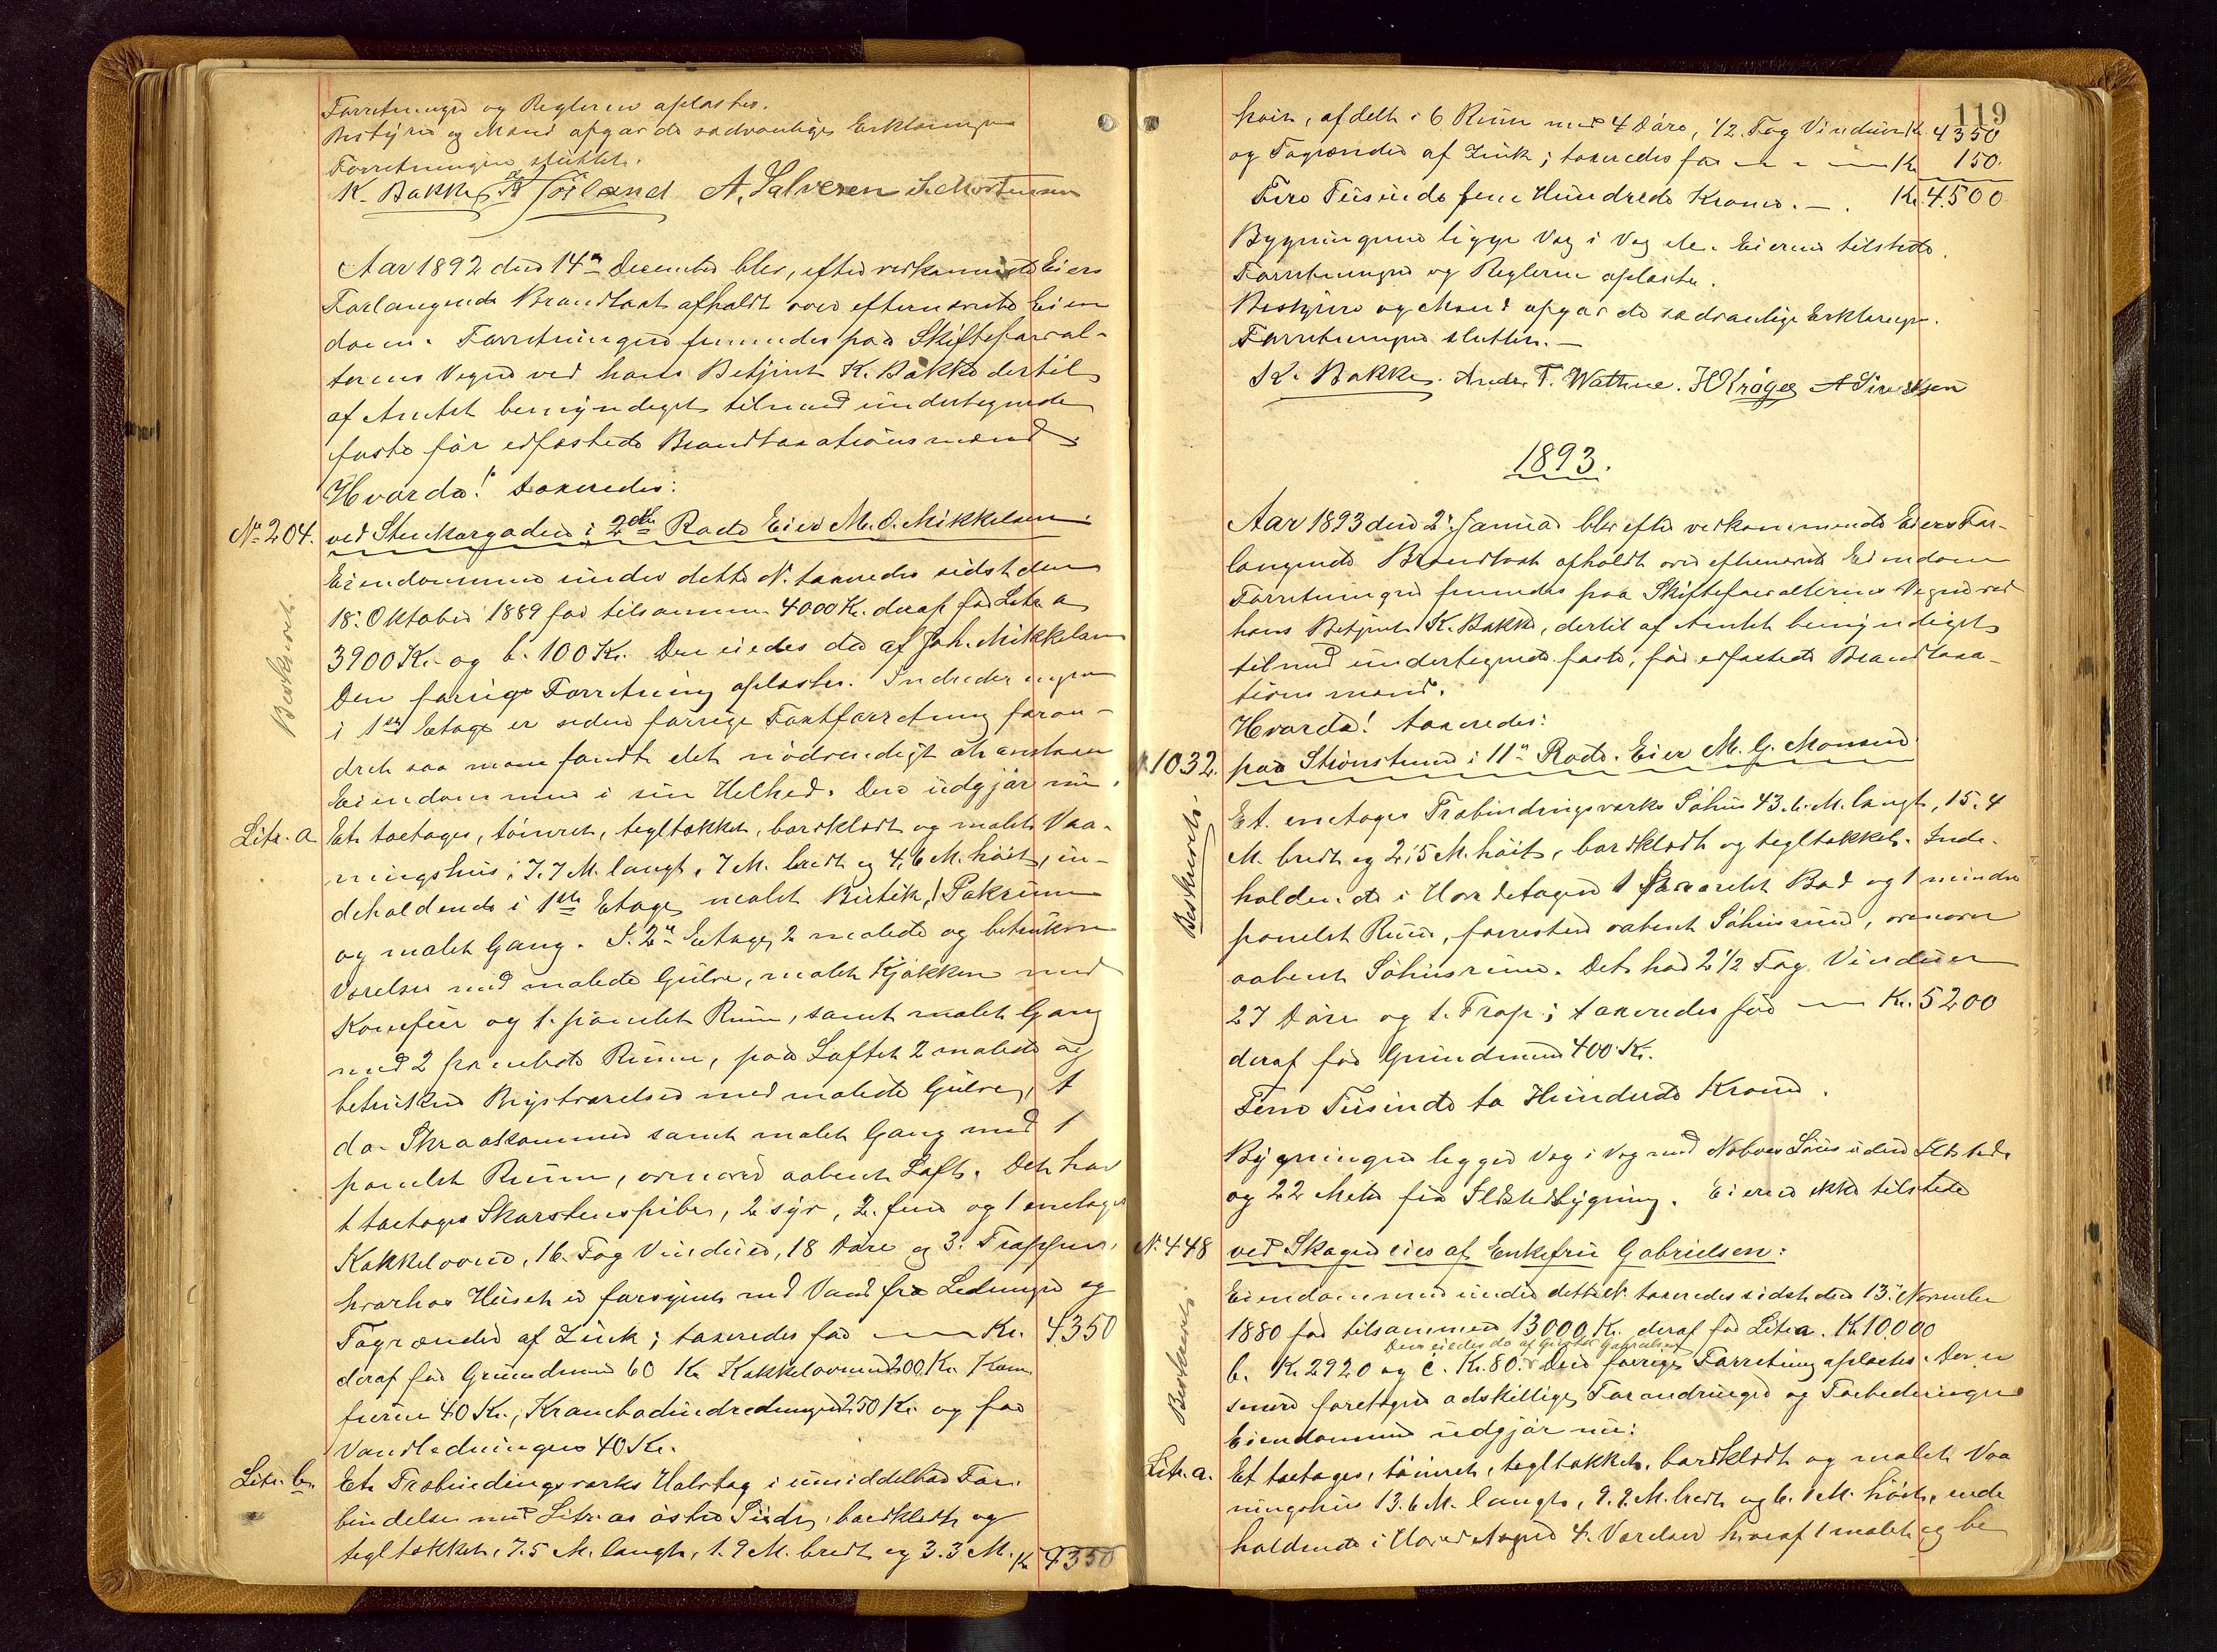 Forretningen og Reglerne oplæstes.
Bestyrer og Mænd afgav de sædvanlige Erklæringer
Forretningen sluttet.
K. Bakke A. Salvesen
Aar 1892 den 14de December blev, efter vedkommende Eiers
Forlangende Brandtaxt afholdt over efternævnte Eien
dom. Forretningen fremmedes paa Skifteforval-
terens Vegne ved hans Betjent K. Bakke dertil
af Amtet bemyndiget tilmed undertegnede
faste før edfæstede Brandtaxationsmænd.
Hvorda! taxeredes:
No 204. ved Stenkargaden i 2den Rode Eier M. O. Mikkelsen
Beskrevet.
Eiendommen under dette N. taxeredes sidst den
18. Oktober 1889 for tilsammen 4000 Kr. deraf for Litr. a
3900 Kr. og b. 100 Kr. Den eiedes da af Joh. Mikkelsen
Den forrige Forretning oplæstes. Indredningen
i 1ste Etage er siden forrige Taxtforretning foran-
dret saa man fandt det nødvendigt at omtaxere
Eiendommen i sin Helhed. Den udgjør nu:
Litr. a Et toetages, tømret, tegltækket, bordklædt og malet Vaa-
ningshus, 7.7 M. langt, 7 M. bredt og 4,6 M. høit, in-
deholdende i 1ste Etage malet Butik, 1 Pakrum
og malet Gang. I 2den Etage, 2 malede og betrukne
Værelser med malede Gulve, malet Kjøkken med
Komfur og 1 panelet Rum, samt malet Gang
med 2 panelede Rum, paa Loftet 2 malede og
betrukne Kvistværelser med malede Gulve, 1
do. Skraakammer samt malet Gang med 1
panelet Rum, ovenover aabent Loft. Det har
1 toetages Skorstenspibe, 2 syv, 2 fem og 1 enetages
Kakkelovne, 16 Fag Vinduer, 18 Døre og 3 Trapper,
hvorhos Huset er forsynet med Vand fra Ledningen og
Tagrender af Zink; taxeredes for Kr. 4350
deraf for Grundmur 60 Kr. Kakkelovne 200 Kr. Kom
furer 40 Kr., Krambodindredningen 250 Kr. og for
Vandledningen 40 Kr.
Litr. b. Et Træbindingsværks Halvtag i umiddelbar For-
bindelse med Litr. as østre Side, bordklædt og
tegltækket, 7.5 M. langt, 1.9 M. bredt og 3.3 M. Kr 4350
119
høit, afdelt i 6 Rum med 4 Døre, 1/2 Fag Vinduer Kr. 4350
og Tagrender af Zink; taxeredes for Kr. 150.
Fire Tusinde fem Hundrede Kroner. Kr. 4500
Bygningerne ligge Væg i Væg Eieren tilstede.
Forretningen og Reglerne oplæstes.
Bestyrer og Mænd afgav de sædvanlige Erklæringer.
Forretningen sluttet.
K. Bakke. Ander T. Wathne. H Krøger A Sivertsen
1893.
Aar 1893 den 2. Januar blev efter vedkommende Eiers For-
langende Brandtaxt afholdt over efternævnte Eiendom
Forretningen fremmedes paa Skifteforvalterens Vegne ved
hans Betjent K. Bakke, dertil af Amtet bemyndiget
tilmed undertegnede faste, før edfæstede Brandtaxa-
tionsmænd.
Hvorda! taxeredes:
No 1032. paa Strømstenen i 11te Rode. Eier M. G. Monsen
Beskrevet.
Et enetages Træbindingsværks Søhus 43.6 M. langt, 15.4
M. bredt og 2,5 M. høit, bordklædt og tegltækket. Inde-
holdende i Hovedetagen 1 Bod og 1 mindre
panelet Rum, forresten aabent Søhusrum, ovenover
aabent Søhusrum. Det har 2 1/2 Fag Vinduer
27 Døre og 1 Trap; taxeredes for Kr. 5200
deraf for Grundmur 400 Kr.
Fem Tusinde to Hundrede Kroner.
Bygningen ligger Væg i Væg med Naboes Søhus uden Ildsted
og 22 Meter fra Ildstedbygning. Eieren ikke tilstede
No 448 ved Skagen eies af Enkefru Gabrielsen:
Beskrevet.
Eiendommen under dette N. taxeredes sidst den 13. November
1880 for tilsammen 13000 Kr. deraf for Litr. a. Kr 10.000
Den eiedes da af Gabrielsen
b. Kr. 2920 og c. Kr. 80. Den forrige Forretning oplæstes. Der er
senere foretaget adskillige Forandringer og Forbedringer
Eiendommen udgjør nu:
Litr. a. Et toetages, tømret, tegltækket, bordklædt og malet Vaa
ningshus 13.6 M. langt, 9.9 M. bredt og 6.1 M. høit, inde
holdende i Hovedetagen 4 Værelser hvoraf 1 malet og be